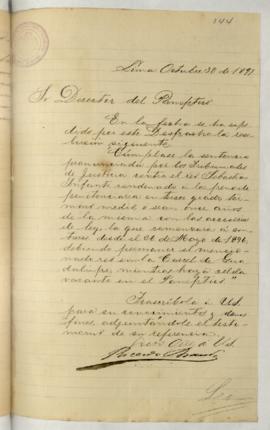 144
Lima Octubre 30 de 1891.
Sr. Director del Panóptico
En la fecha se ha expe-
dido por este Despacho la reso-
lución siguiente.
"Cúmplase la sentencia
pronunciada por los Tribunales
de Justicia contra el reo Sebastian
Infante condenado á la pena de
penitenciaria en tercer grado, tér-
mino medio o sean once años
de la misma con las accesorias
de ley, la que comenzará á con-
tarse desde el 06 de Mayo de 1890,
debiendo permanecer el mencio-
nado reo en la Carcel de Gua-
dalupe, mientras haya celda
vacante en el Panóptico"
Trascríbola á US.
para su conocimiento y demas
fines, adjuntándole el testi-
monio de su referencia.
Dios Gue á US.
Ricardo